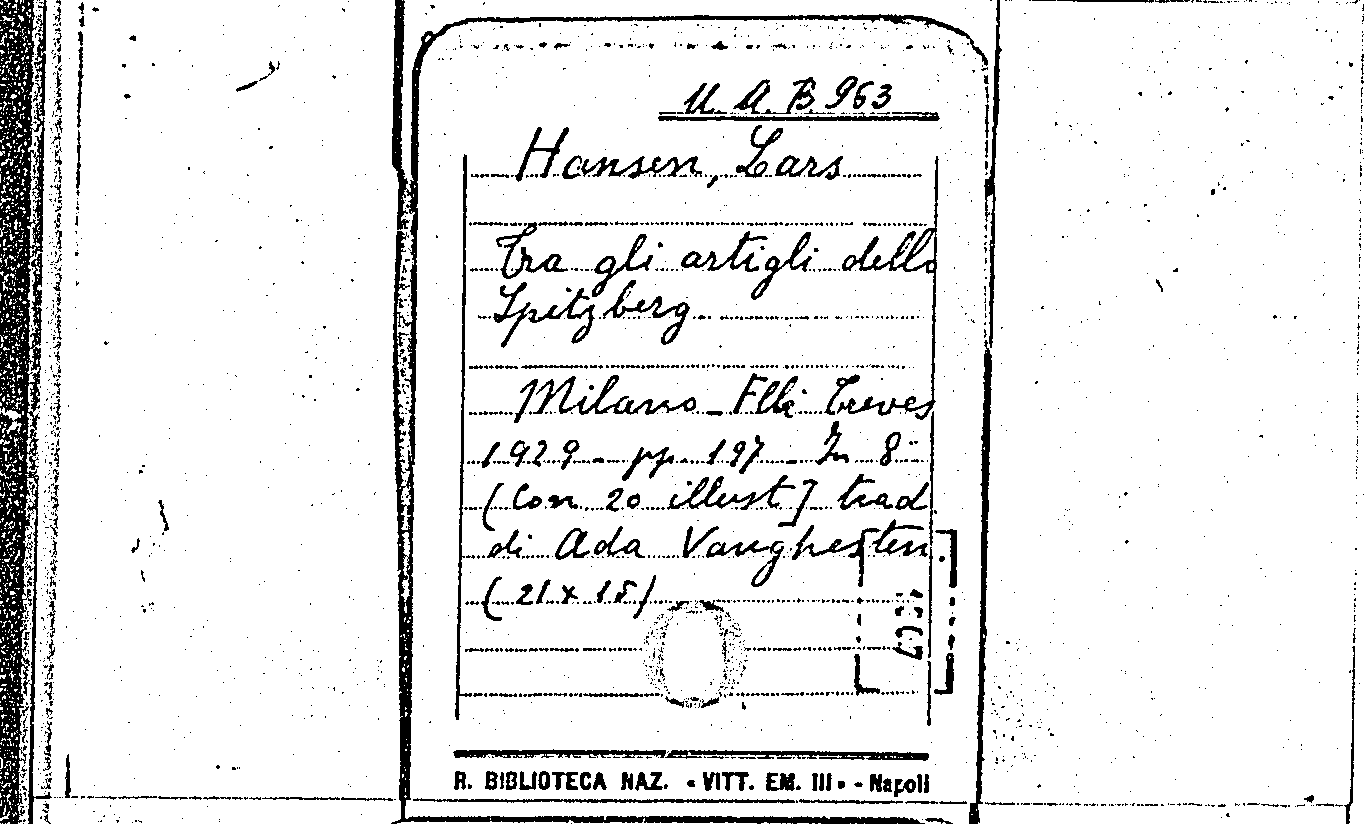 U. A. B. 963
Hansen, Lars
Tra gli artigli dello
Spitzberg
Milano - Flli Treves
1929 - pp. 197 - In 8°
(Con 20 illust] trad
di Ada Vanghesten
(21 x 15)
R. BIBLIOTECA NAZ. « VITT. EM. III » - Napoli